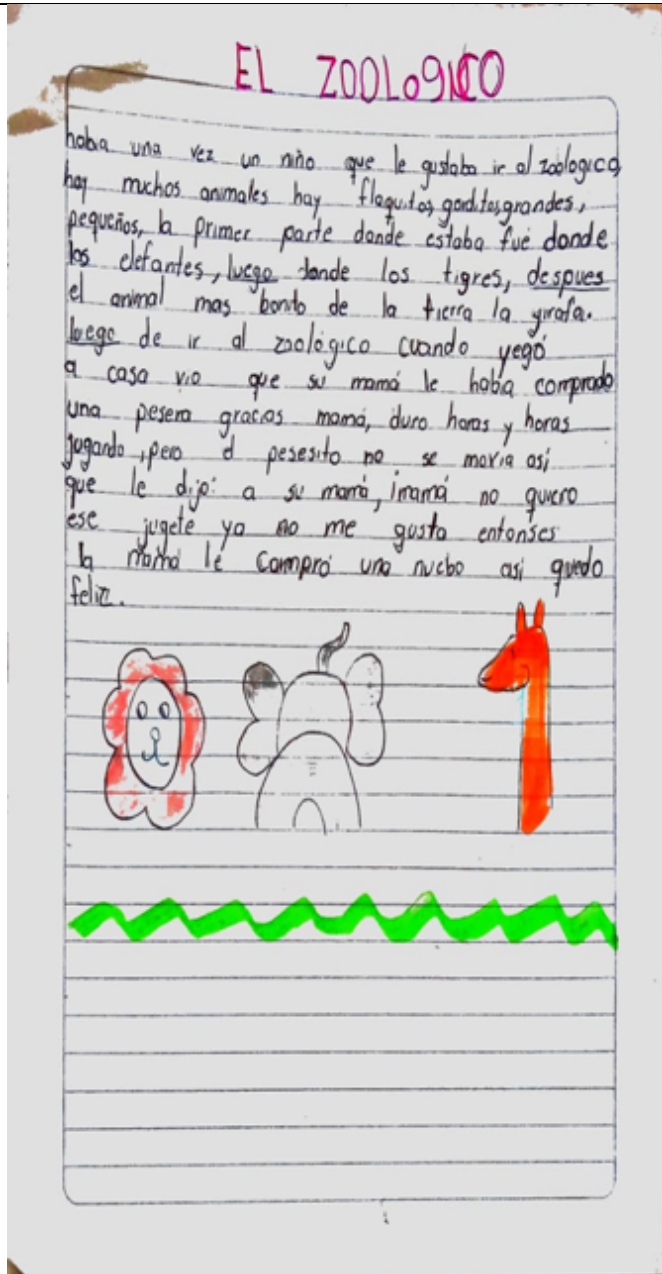 EL ZOOLOGICO
haba una vez un niño que le gustaba ir al zoologico,
hay muchos animales hay flaquitos, gorditos, grandes,
pequeños, la primer parte donde estaba fué donde
los elefantes, luego donde los tigres, despues
el animal mas bonito de la tierra la girafa.
luego de ir al zoológico cuando yegó
a casa vio que su mamá le habia comprado
una pesera gracias mamá, duro horas y horas
jugando, pero el pesesito no se movia asi
que le dijo: a su mamá, ¡mamá no quiero
ese jugete ya no me gusta entonses
la mamá le compró una nuebo asi quedo
feliz.